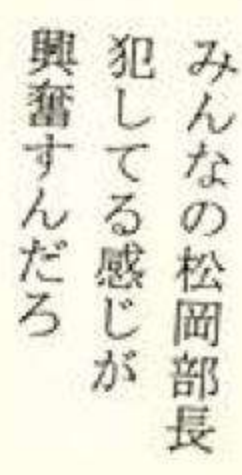 みんなの松岡部長
犯してる感じが
興奮すんだろ